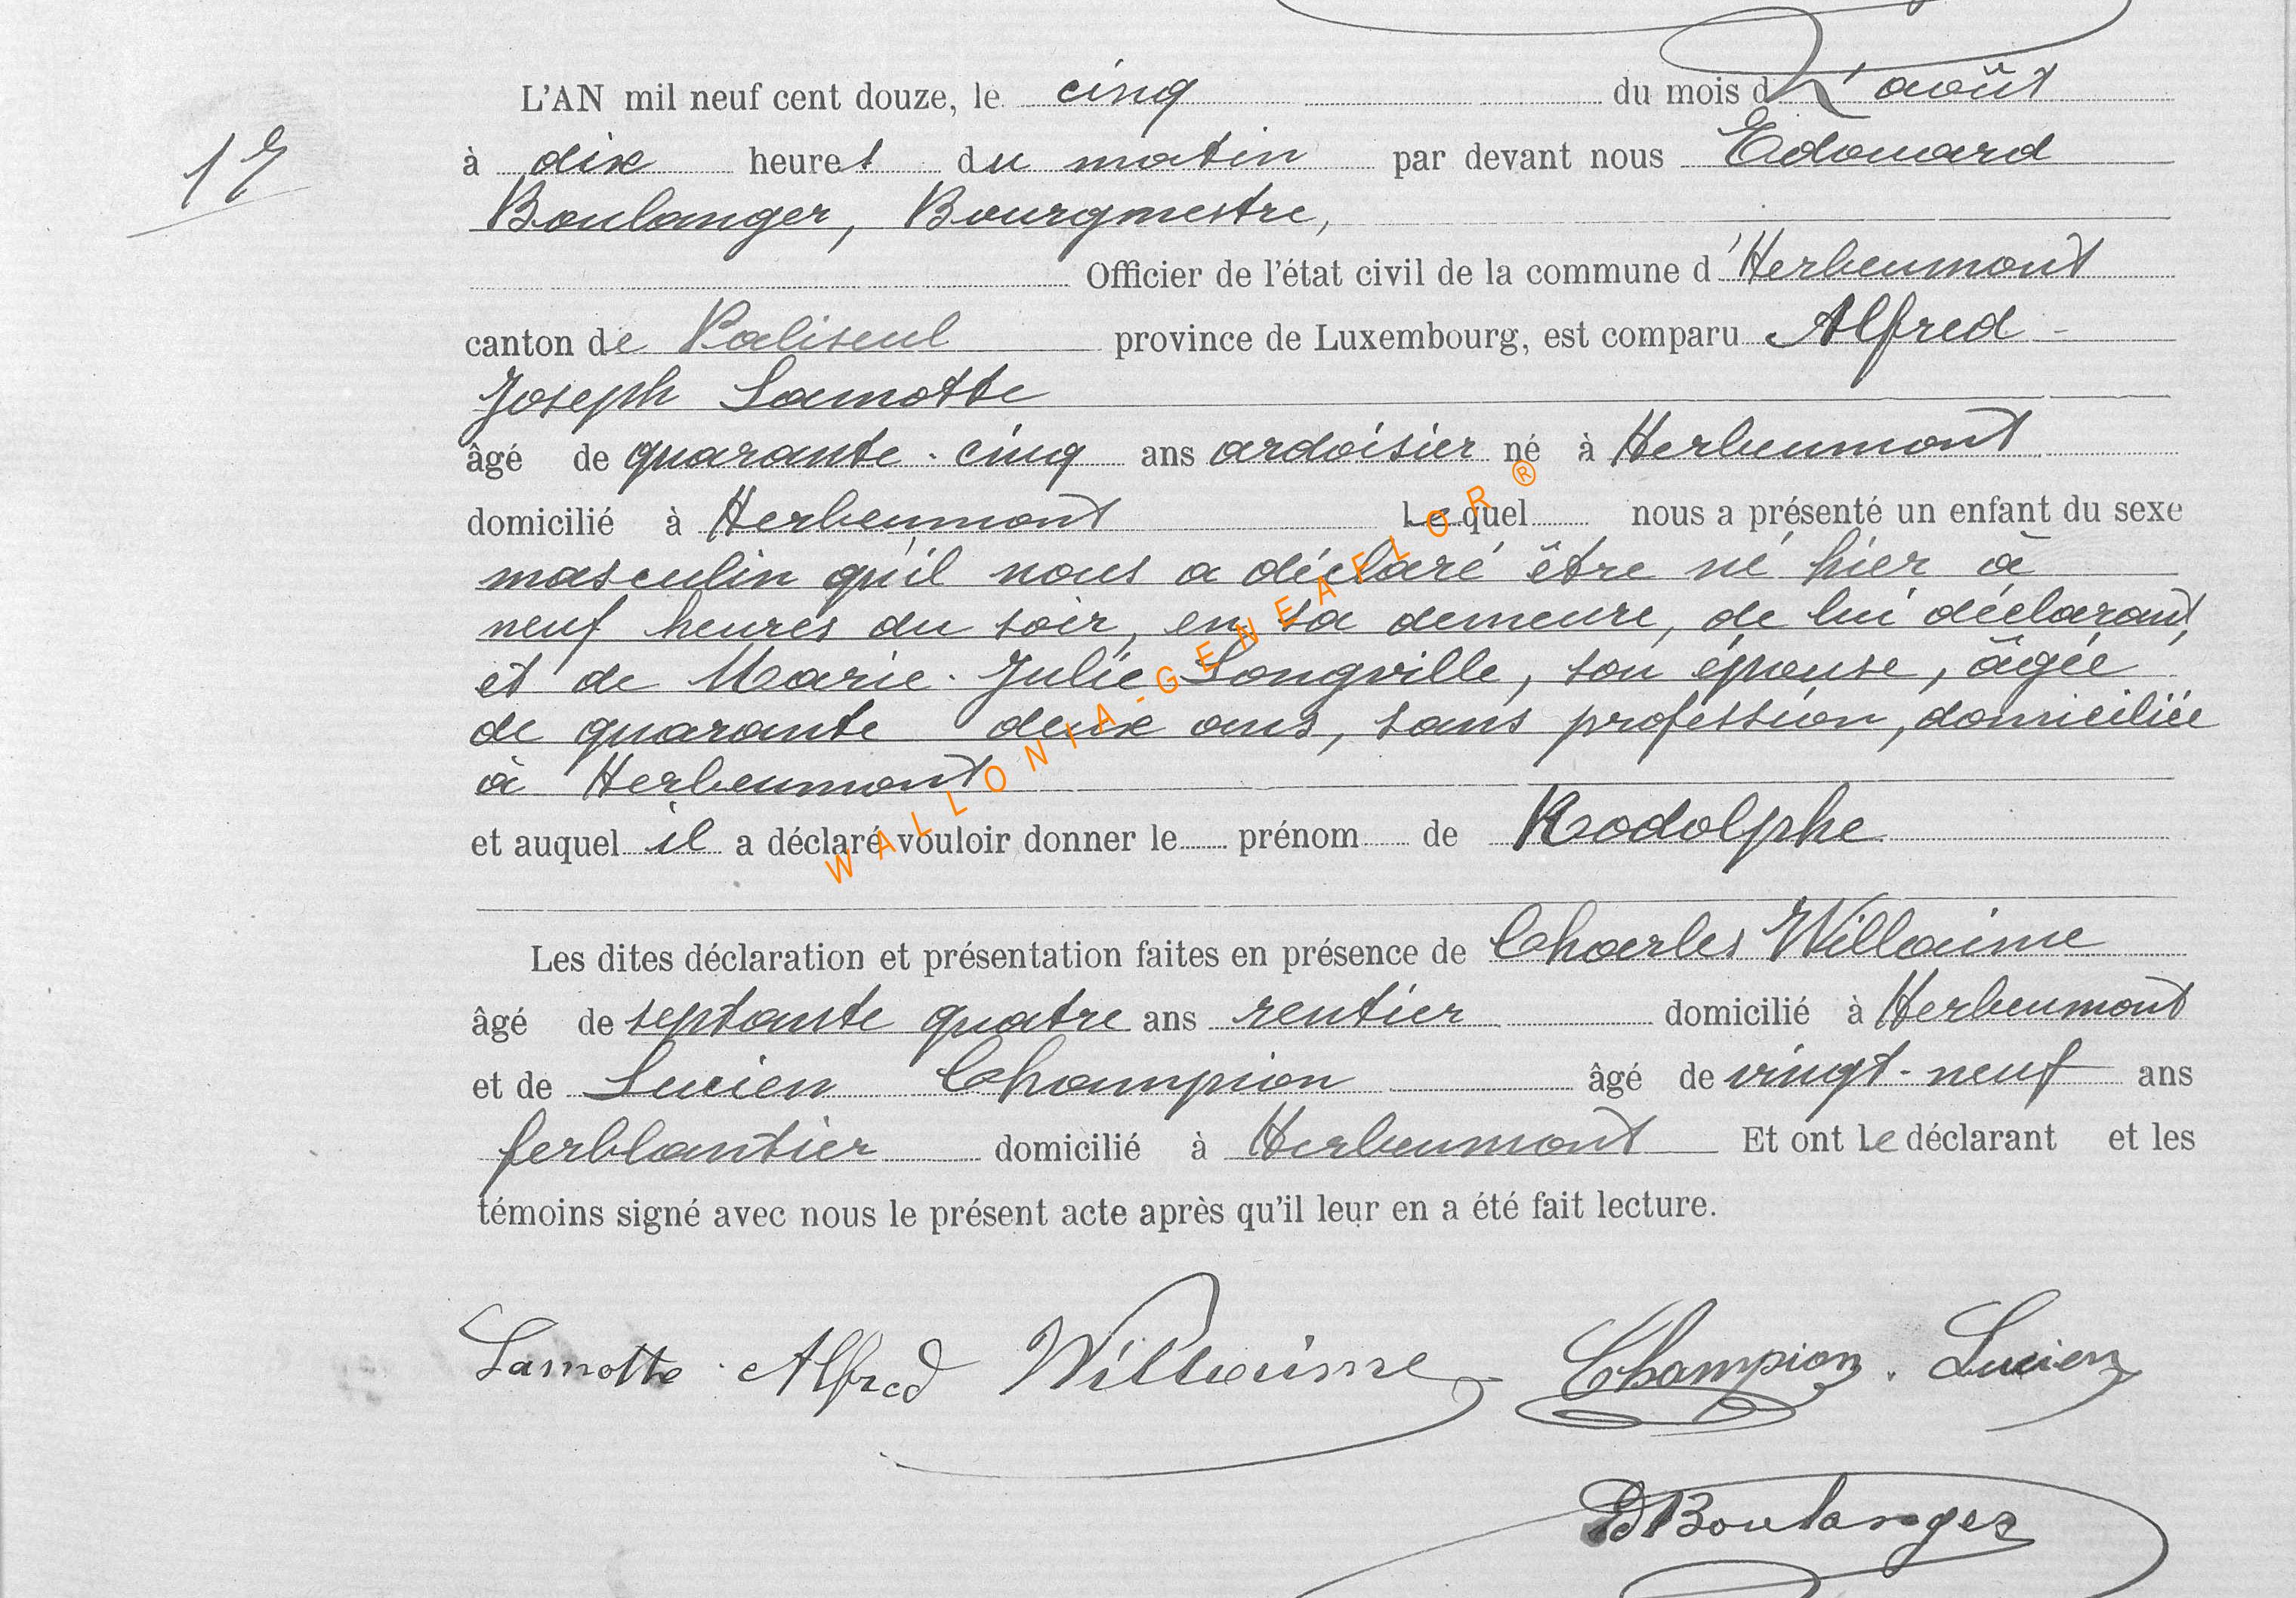 17
L'AN mil neuf cent douze, le cinq du mois d'août
à dix heures du matin par devant nous Edouard
Boulanger, Bourgmestre,
Officier de l'état civil de la commune d'Herbeumont
canton de Paliseul province de Luxembourg, est comparu Alfred-
Joseph Lamotte
âgé de quarante-cinq ans ardoisier né à Herbeumont
domicilié à Herbeumont Lequel nous a présenté un enfant du sexe
masculin qu'il nous a déclaré être né hier à
neuf heures du soir, en sa demeure, de lui déclarant,
et de Marie-Julie Longville, son épouse, âgée
de quarante deux ans, sans profession, domiciliée
à Herbeumont
et auquel il a déclaré vouloir donner le prénom de Rodolphe
Les dites déclaration et présentation faites en présence de Charles Willaime
âgé de septante quatre ans rentier domicilié à Herbeumont
et de Lucien Champion âgé de vingt-neuf ans
ferblantier domicilié à Herbeumont Et ont le déclarant et les
témoins signé avec nous le présent acte après qu'il leur en a été fait lecture.
Lamotte Alfred Willaime Champion. Lucien
Ed Boulanger
WALLONIA-GENEAFLOR ®